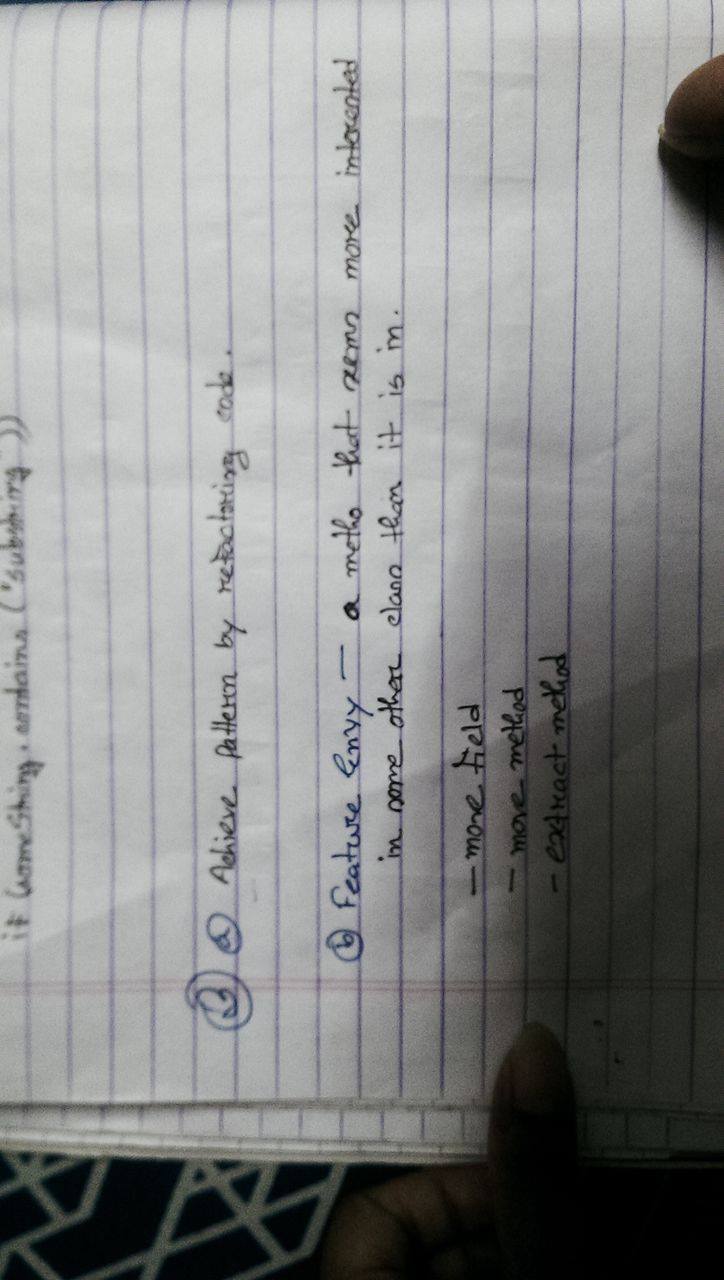 if (someString.contains ("substring"))
a Achieve pattern by refactoring code.
b Feature Envy — a metho that seems more interested
in some other class than it is in.
— move field
— move method
- extract method